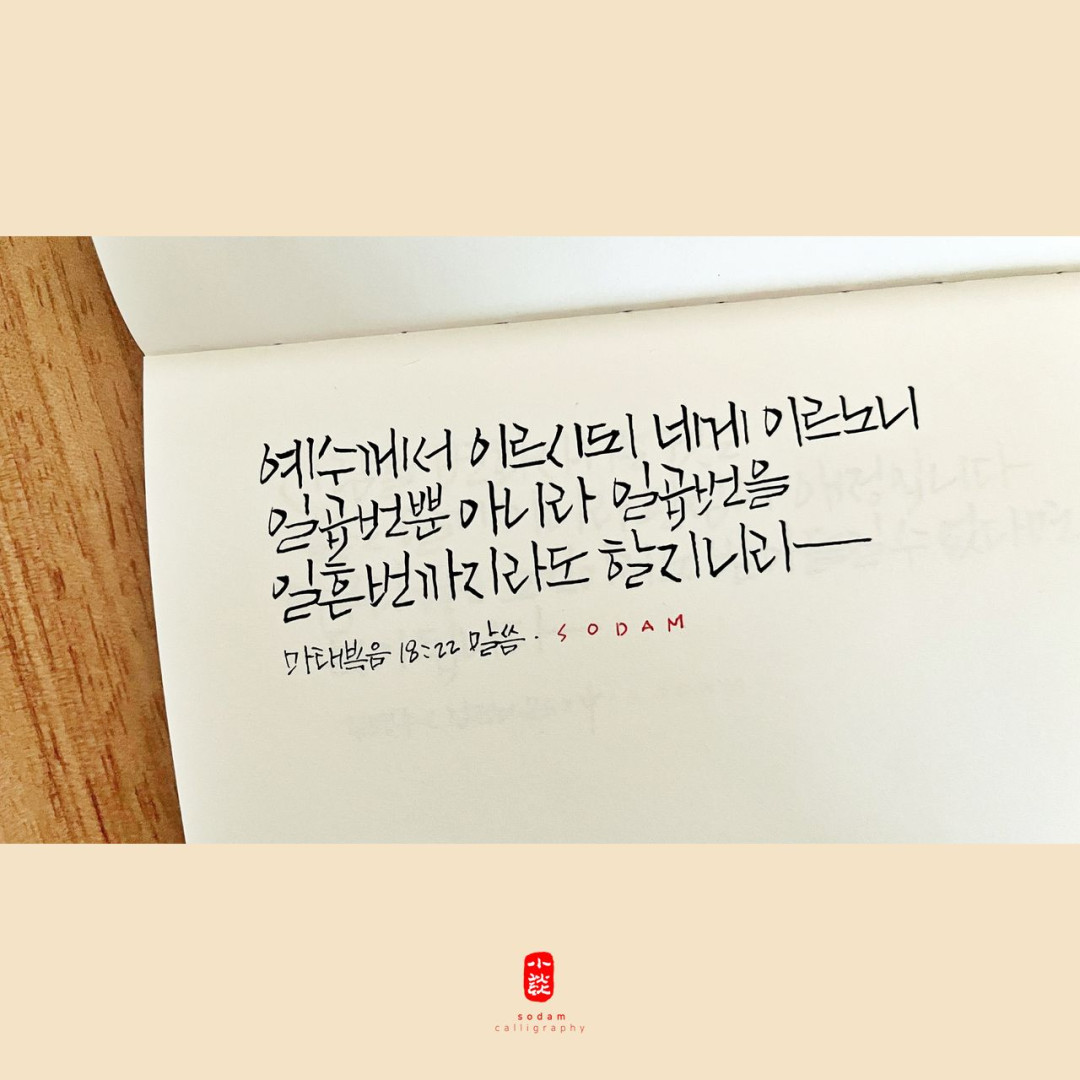 예수께서 이르시되 네게 이르노니
일곱번뿐 아니라 일곱번을
일흔번까지라도 할지니라—
마태복음 18:22 말씀. SODAM
小
sodam
calligraphy